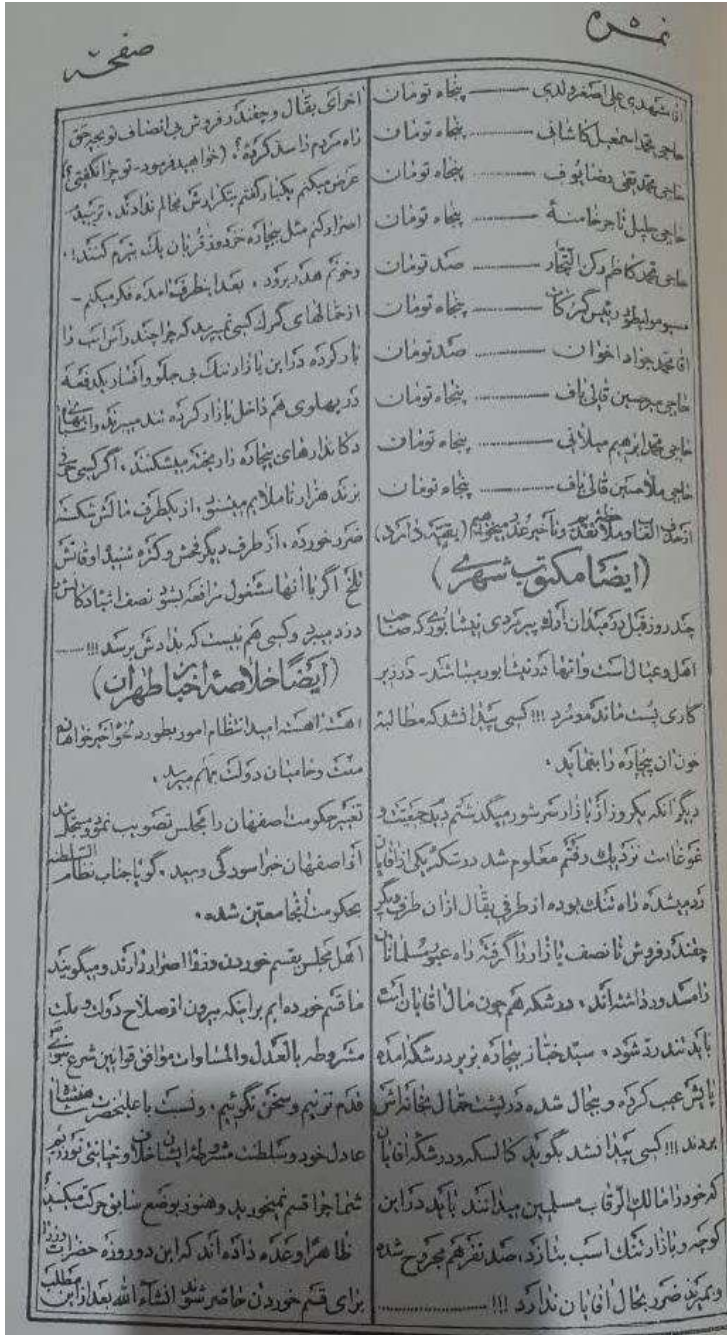 نمره ۵
صفحه
اقا مشهدی علی اصغر ولدی ــــــ پنجاه تومان
حاجی محمد اسمعیل کاشانی ............ پنجاه تومان
حاجی محمد تقی رضایوف ............ پنجاه تومان
حاجی جلیل تاجر خامنهٔ ــــــ پنجاه تومان
حاجی محمد کاظم رکن التجار ............ صد تومان
مسیو رئیس گمرکات ــــــ پنجاه تومان
اقا محمد جواد اخوان ــــــ صد تومان
حاجی میرحسین قالی باف ............ پنجاه تومان
حاجی محمد ابرهیم میلانی ............ پنجاه تومان
حاجی ملا حسین قالی باف ............ پنجاه تومان
از حذف القاب و تقدیم و تأخیر عذر میخواهم (بقیه دارد)
(ایضا مکتوب شهری)
چند روز قبل در میدان ارك پیرمردی نیشابوری که صاحب
اهل و عیال است و انها در نیشابور میباشند ـ در زیر
گاری پست مانده و مرد !!! کسی پیدا نشد که مطالبهٔ
خون ان بیچاره را بنماید .
دیگر انکه یکروز از بازار سرشور میگذشتم دیدم جمعیت و
غوغا است نزدیك رفتم معلوم شد درشکهٔ یکی از اقایان
رد میشده راه تنك بوده از طرفی بقال از ان طرف دیگر
چغندر فروش تا نصف بازار را گرفته راه عبور مسلمانان
را مسدود داشته‌اند . درشکه هم چون مال اقایان است
باید تند رد شود . سید خباز بیچاره بزیر درشکه امده
پایش عیب کرده و بیحال شده در پشت حمال بخانه‌اش
بردند !!! کسی پیدا نشد بگوید کالسکه و درشکهٔ اقایان
که خود را مالك الرقاب مسلمین میدانند نباید در این
کوچه و بازار تنك اسب بتازد ، صد نفر هم مجروح شده
و بمیرند ضرر بحال اقایان ندارد !!! ............
اخر ای بقال و چغندر فروش بی انصاف تو بچه حق
راه مردم را سد کردهٔ ؟ . (خواهید فرمود ـ تو چرا نگفتی ؟)
عرض میکنم یکبار گفتم بتکرارش مجالم ندادند . ترسیدم
اصرار کنم مثل بیچاره خرد و زیر قربان یك شترم کنند !
و خونم هدر برود . بعد اینطرف امده فکر میکنم ـ
از حمالهای گمرك کسی نمیپرسد که چرا چند راس اسب را
بار کرده در این بازار تنك بی جلو و افسار یکدفعه
در پهلوی هم داخل بازار کرده تند میبرند و اسبابهای
دکاندارهای بیچاره را ریخته میشکنند ، اگر کسی حرفی
بزند هزار ناملایم میشنود ، از یکطرف مالش شکسته
ضرر خورده ، از طرف دیگر فحش و کتره شنیده اوقاتش
تلخ اگر با انها مشغول مرافعه بشود نصف اسباب دکانش
دزد میبرد و کسی هم نیست که بدادش برسد !!! ......
(ایضاً خلاصهٔ اخبار طهران)
اهسته اهسته امید انتظام امور بطور دلخواه خیرخواهان
ملت و حامیان دولت بهم میرسد .
تغییر حکومت اصفهان را مجلس تصویب نموده
از اصفهان خبر اسودگی رسید . گویا جناب نظام السلطنه
بحکومت انجا معین شده .
اهل مجلس بقسم خوردن وزرا اصرار دارند و میگویند
ما قسم خورده ایم بر اینکه بیرون از صلاح دولت و ملت
مشروطه بالعدل والمساوات موافق قوانین شرع سوای
قدم نزنیم و سخن نگوئیم . و نسبت باعلیحضرت شاهنشاه
عادل خود و سلطنت مشروطهٔ ایشان اخلال و خیانتی نورزیم
شما چرا قسم نمیخورید و هنوز بوضع سابق حرکت میکنید
ظاهراً وعده داده‌اند که این دو روزه حضرات وزرا
برای قسم خوردن حاضر شوند انشاء الله بعد از این مطلب